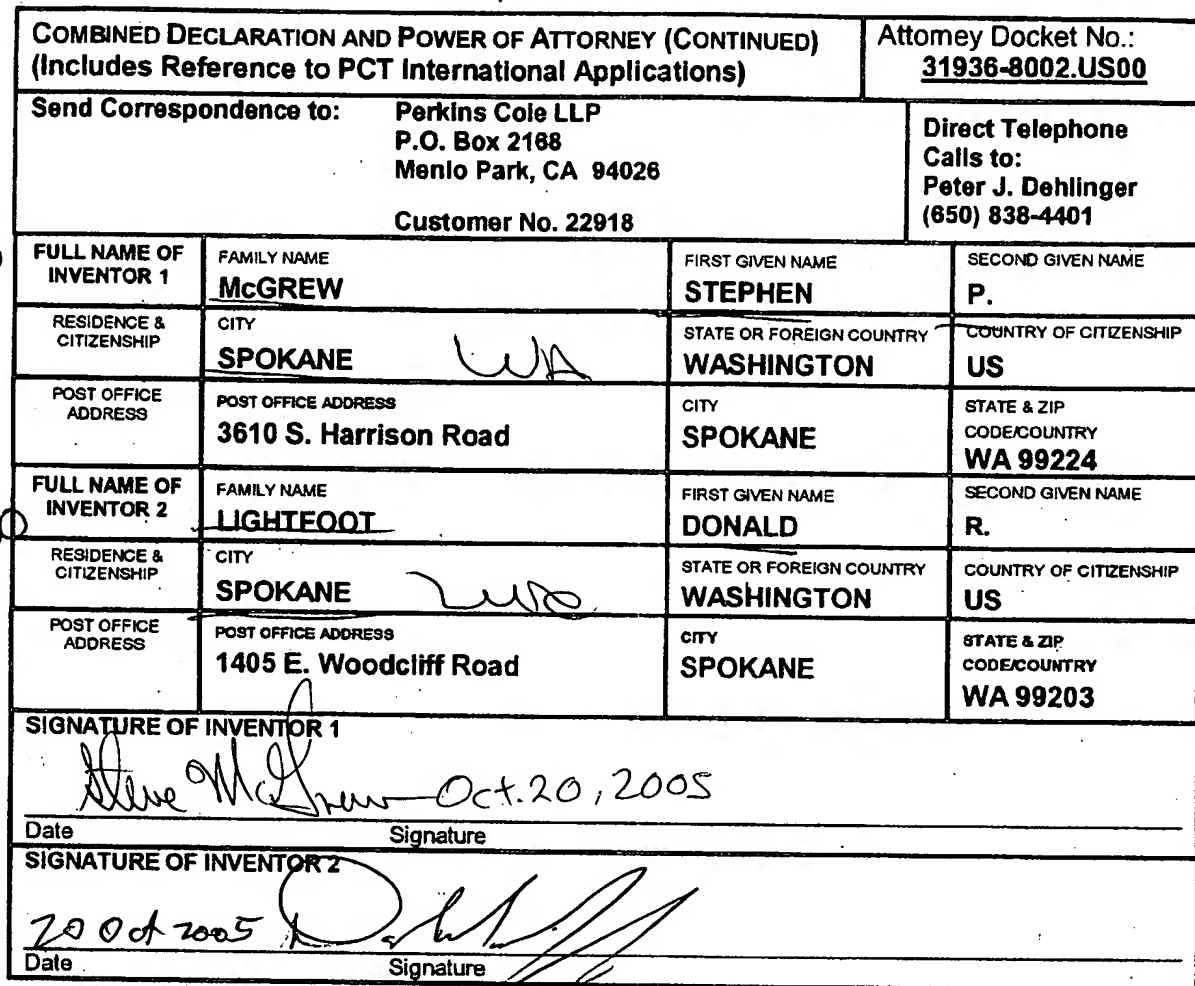 COMBINED DECLARATION AND POWER OF ATTORNEY (CONTINUED)
(Includes Reference to PCT International Applications)
Attorney Docket No.:
31936-8002.US00
Send Correspondence to:
Perkins Coie LLP
P.O. Box 2168
Menlo Park, CA 94026
Customer No. 22918
Direct Telephone
Calls to:
Peter J. Dehlinger
(650) 838-4401
FULL NAME OF
INVENTOR 1
FAMILY NAME
McGREW
FIRST GIVEN NAME
STEPHEN
SECOND GIVEN NAME
P.
RESIDENCE &
CITIZENSHIP
CITY
SPOKANE WA
STATE OR FOREIGN COUNTRY
WASHINGTON
COUNTRY OF CITIZENSHIP
US
POST OFFICE
ADDRESS
POST OFFICE ADDRESS
3610 S. Harrison Road
CITY
SPOKANE
STATE & ZIP
CODE/COUNTRY
WA 99224
FULL NAME OF
INVENTOR 2
FAMILY NAME
LIGHTFOOT
FIRST GIVEN NAME
DONALD
SECOND GIVEN NAME
R.
RESIDENCE &
CITIZENSHIP
CITY
SPOKANE WA
STATE OR FOREIGN COUNTRY
WASHINGTON
COUNTRY OF CITIZENSHIP
US
POST OFFICE
ADDRESS
POST OFFICE ADDRESS
1405 E. Woodcliff Road
CITY
SPOKANE
STATE & ZIP
CODE/COUNTRY
WA 99203
SIGNATURE OF INVENTOR 1
Steve McGrew Oct. 20, 2005
Date Signature
SIGNATURE OF INVENTOR 2
20 Oct 2005
Date Signature